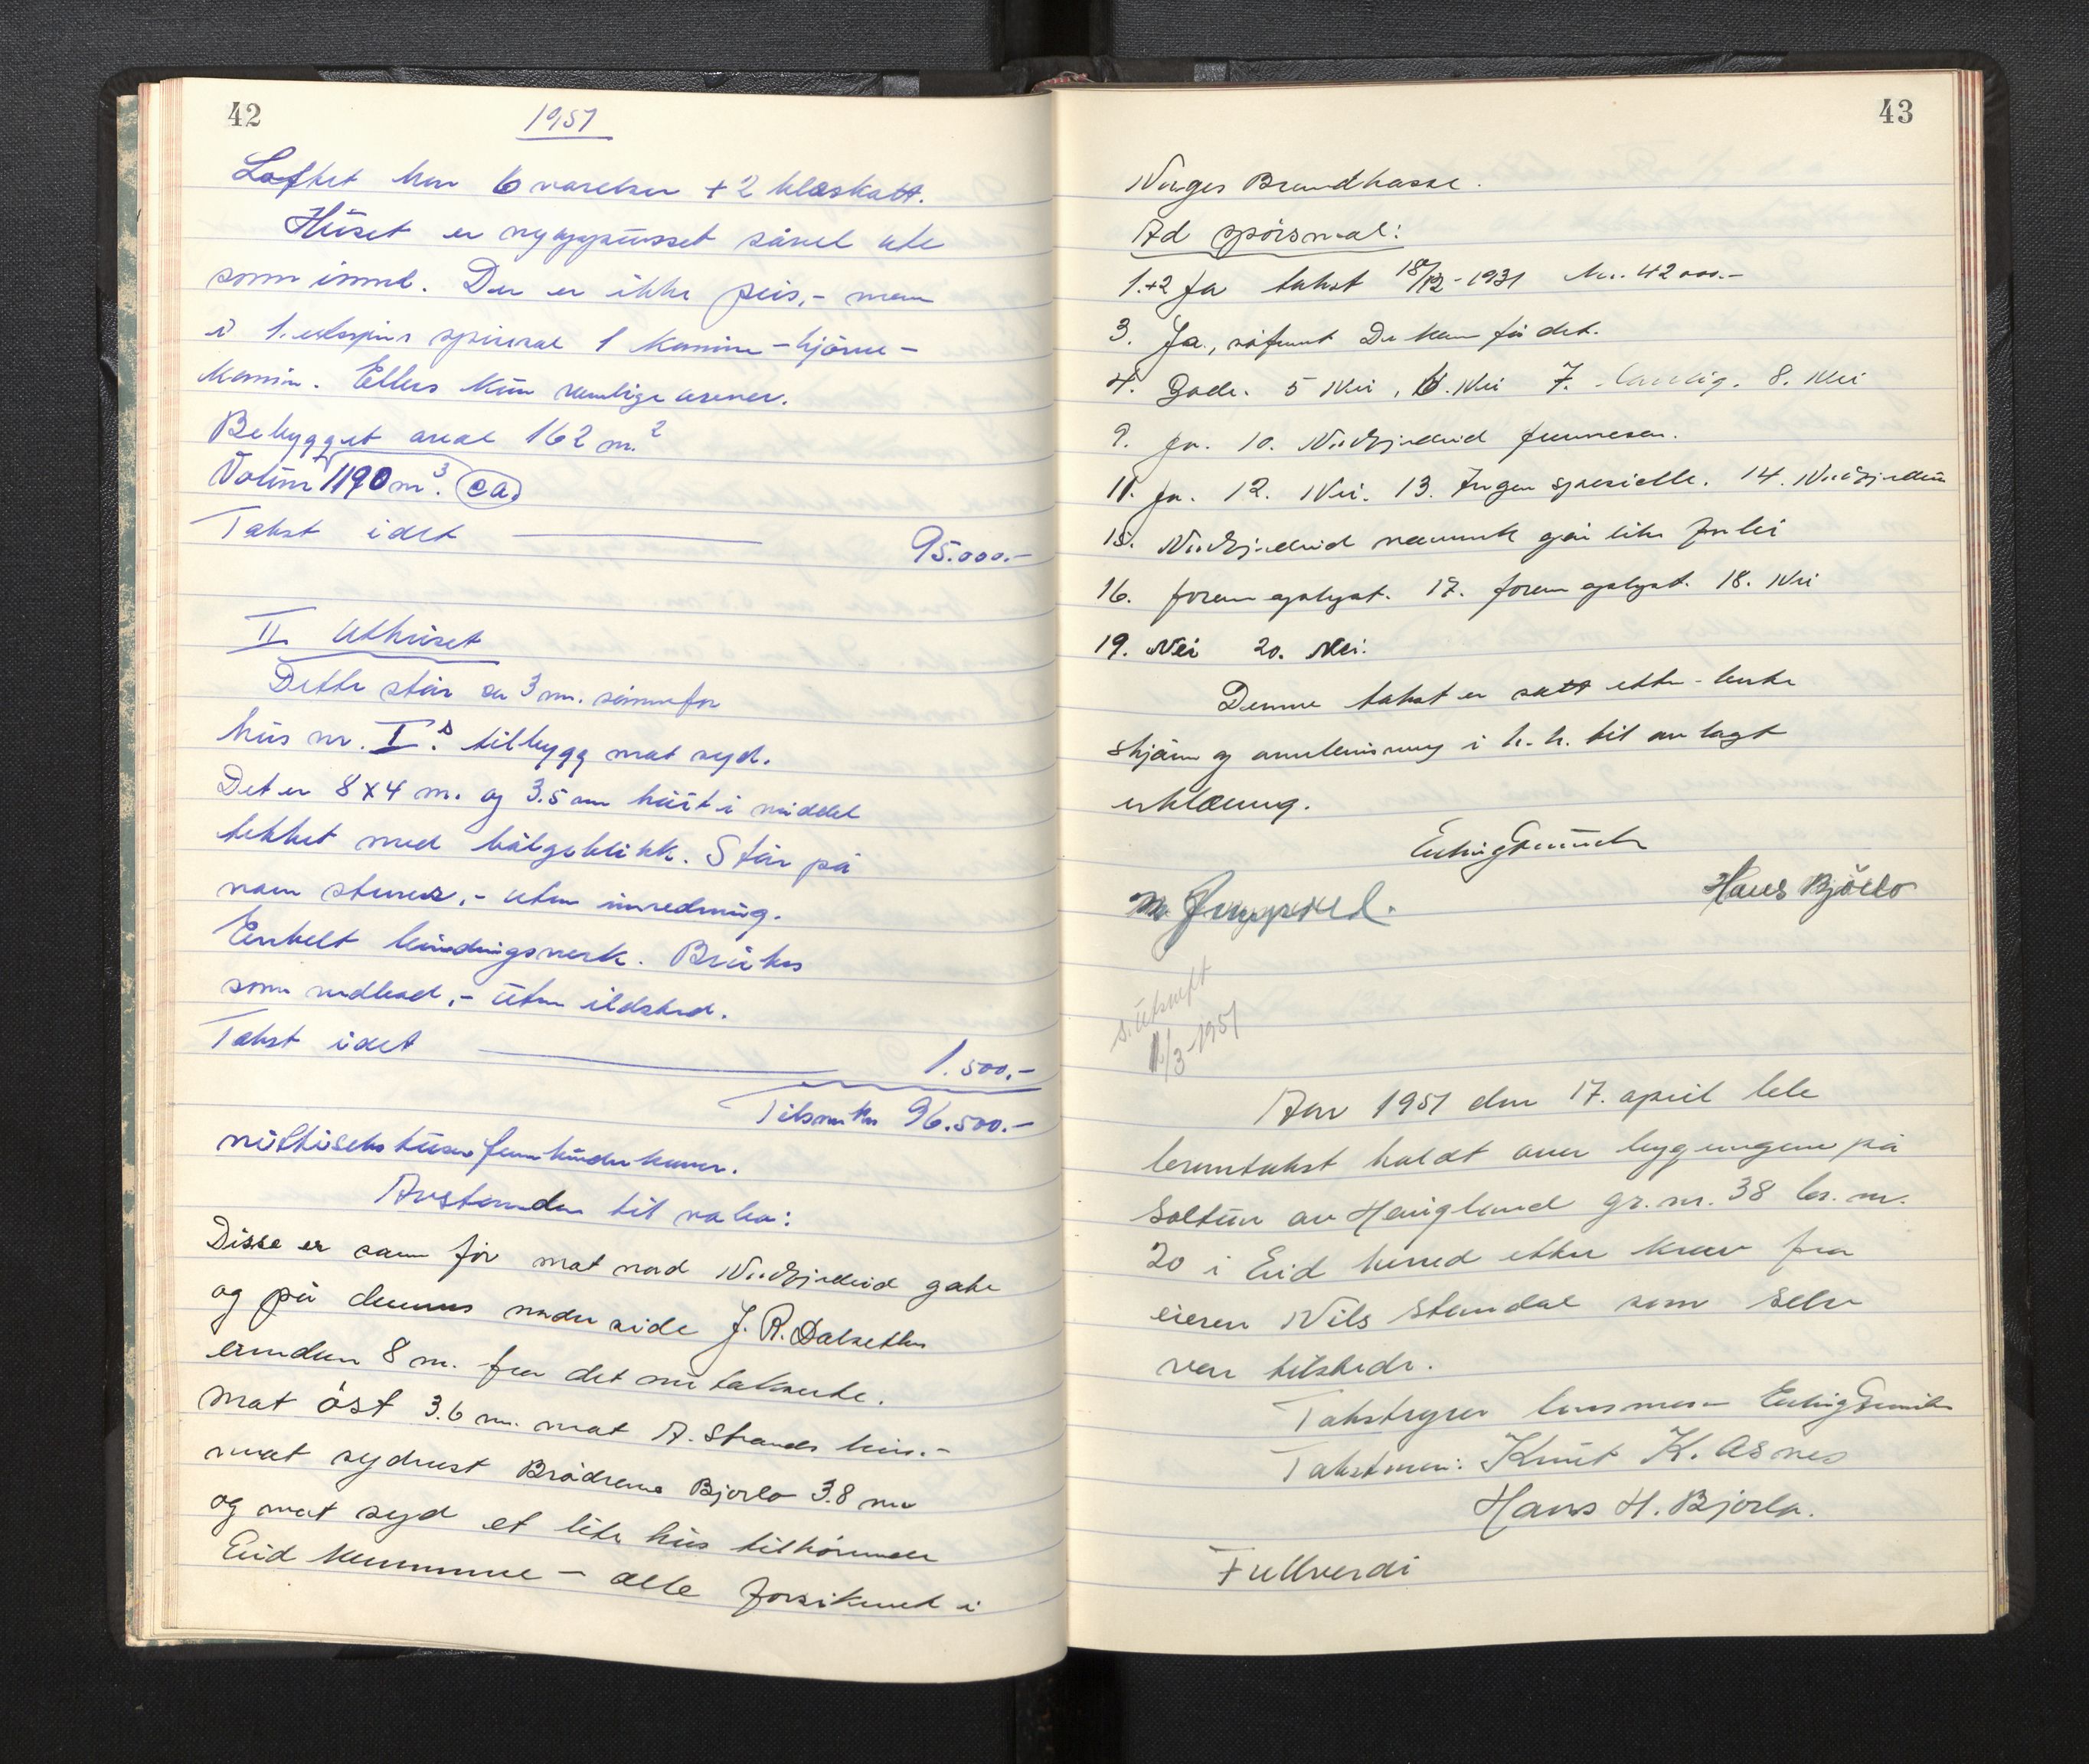 42
1951
Loftet har 6 værelser + 2 kleskott.
Huset er nyoppusset såvel ute
som innd. Der er ikke peis, - men
i 1. etasjes spisesal 1 kamin - hjørne -
kamin. Ellers kun vanlige ovner.
Bebygget areal 162 m.²
Volum 1190 m³. ca.
Takst idet 95.000.-
II Uthuset
Dette står ca 3 m. sønnefor
hus nr. I.s tilbygg mot syd.
Det er 8 x 4 m. og 3.5 m høit i middel
tekket med bølgeblikk. Står på
noen steiner, - uten inredning.
Enkelt bindingsverk. Brukes
som vedbod, - uten ildsted.
Takst idet 1.500.-
Tilsm Kr 96.500.-
nittiseks tusen fem hundre kroner.
Avstanden til nabo:
Disse er som før mot nord Nordfjordeid gate
og på dennes nordre side J. R. Dalsethes
eiendom 8 m. fra det nu takserte.
mot øst 3.6 m. mot A. Strands hus. -
mot sydvest Brødrene Bjørlo 3.8 m
og mot syd et lite hus tilhørende
Eid kommune - alle forsikret i
43
Norges Brandkasse.
Ad spørsmål:
1.+2 Ja takst 18/12-1931 kr. 42000.-
3. Ja, såfremt De kan få det.
4. Gode. 5 Nei, 6. Nei 7. Vanlig. 8. Nei
9. Ja. 10. Nordfjordeid
11. Ja. 12. Nei. 13. Ingen spesielle. 14. Nordfjordeid
15. Nordfjordeid
16. foran oplyst. 17. foran oplyst. 18. Nei
19. Nei 20. Nei.
Denne takst er satt etter beste
skjønn og anvisning i h. h. til avlagt
erklæring.
Hans Bjørlo
s. Utskrift
1/3-1951
Aar 1951 den 17. april ble
branntakst holdt over bygningene på
Soltun av Haugland gr. nr. 38 br. nr.
20 i Eid herred etter krav fra
eieren Nils Standal som selv
var tilstede.
Takstnyrer lensmann
Takstmenn: Knut K. Åsnes
Hans H. Bjørlo.
Fullverdi